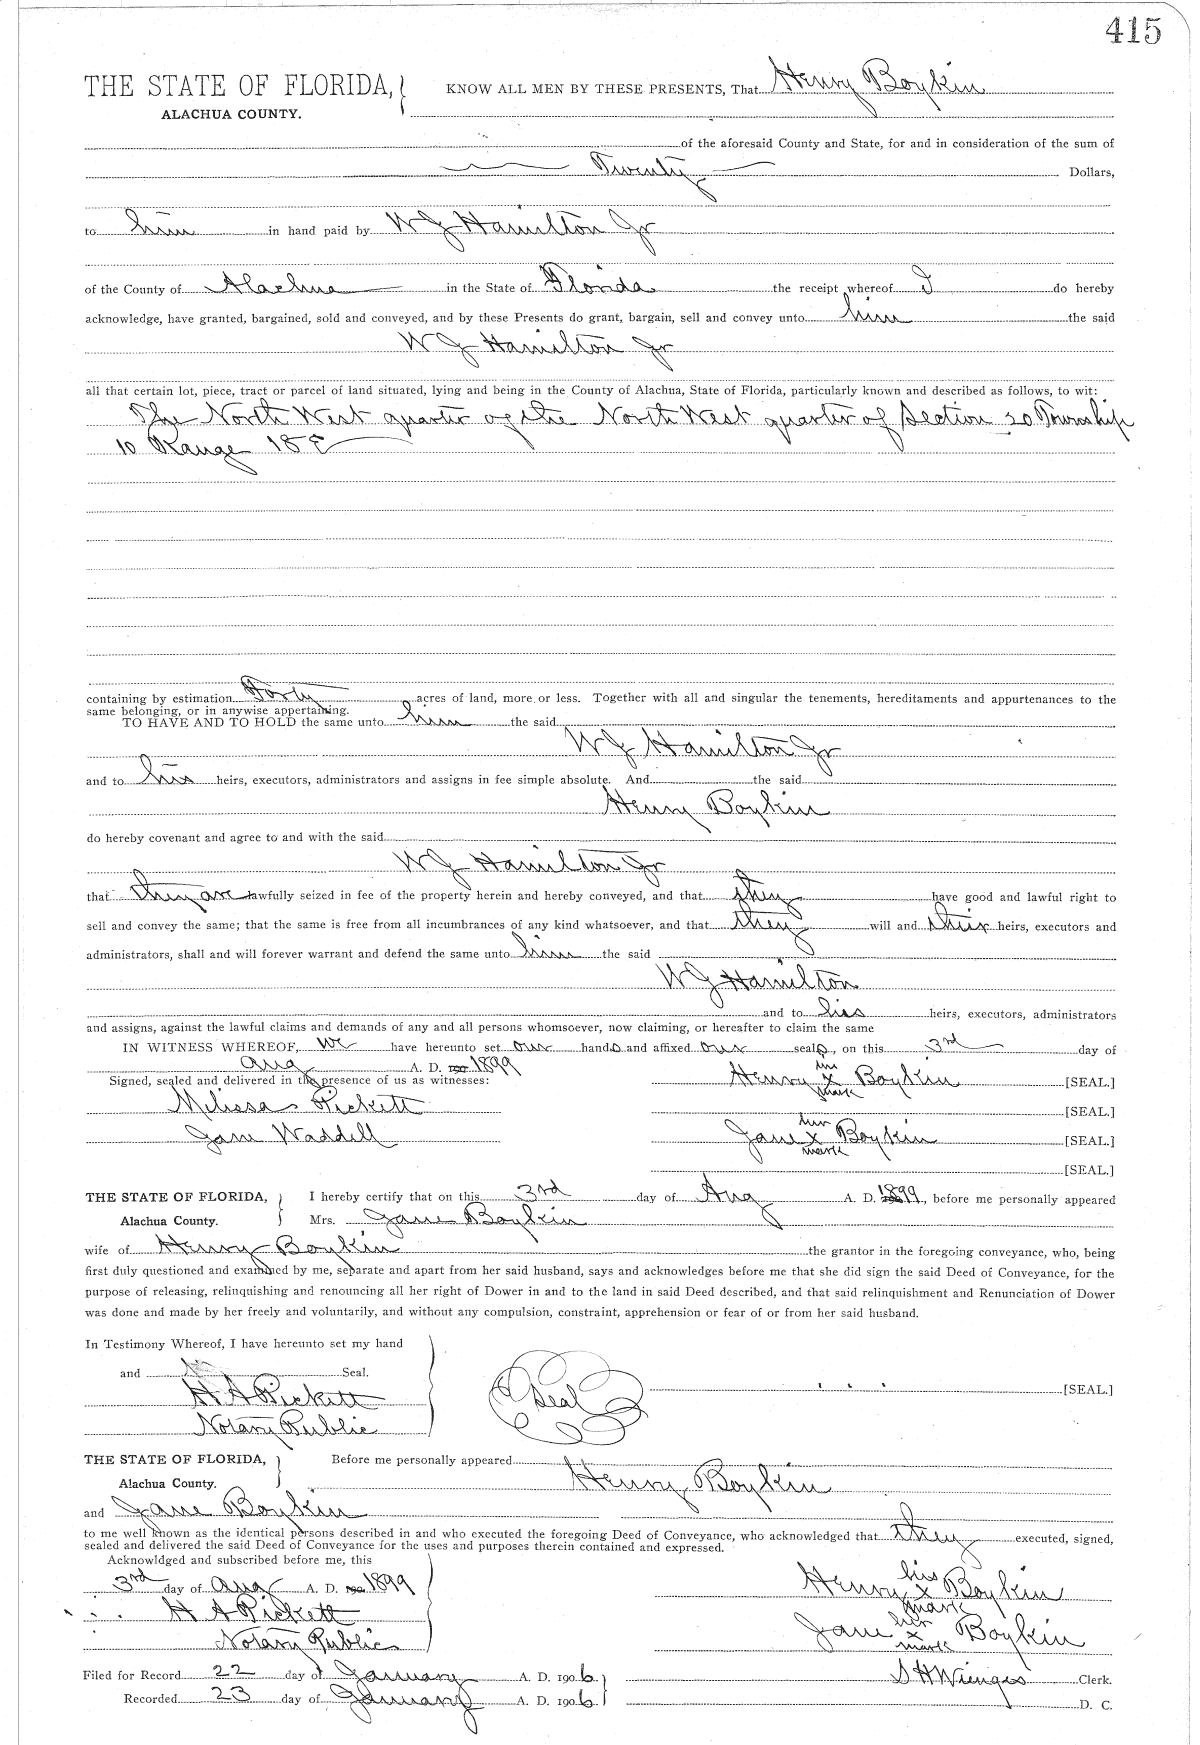 415
THE STATE OF FLORIDA, KNOW ALL MEN BY THESE PRESENTS, That Henry Boykin
ALACHUA COUNTY.
of the aforesaid County and State, for and in consideration of the sum of
Twenty Dollars,
to him in hand paid by W J Hamilton Jr
of the County of Alachua in the State of Florida the receipt whereof I do hereby
acknowledge, have granted, bargained, sold and conveyed, and by these Presents do grant, bargain, sell and convey unto him the said
W J Hamilton Jr
all that certain lot, piece, tract or parcel of land situated, lying and being in the County of Alachua, State of Florida, particularly known and described as follows, to wit:
The North West quarter of the North West quarter of Section 20 Township
10 Range 18 E
containing by estimation Forty acres of land, more or less. Together with all and singular the tenements, hereditaments and appurtenances to the
same belonging, or in anywise appertaining.
TO HAVE AND TO HOLD the same unto him the said
W J Hamilton Jr
and to his heirs, executors, administrators and assigns in fee simple absolute. And the said
Henry Boykin
do hereby covenant and agree to and with the said
W J Hamilton Jr
that they are lawfully seized in fee of the property herein and hereby conveyed, and that they have good and lawful right to
sell and convey the same; that the same is free from all incumbrances of any kind whatsoever, and that they will and their heirs, executors and
administrators, shall and will forever warrant and defend the same unto him the said
W J Hamilton
and to his heirs, executors, administrators
and assigns, against the lawful claims and demands of any and all persons whomsoever, now claiming, or hereafter to claim the same
IN WITNESS WHEREOF, we have hereunto set our hands and affixed our seals, on this 3rd day of
Aug A. D. 1899
Signed, sealed and delivered in the presence of us as witnesses: Henry his x mark Boykin [SEAL.]
Melissa Pickett [SEAL.]
Jane Waddell Jane her x mark Boykin [SEAL.]
[SEAL.]
THE STATE OF FLORIDA, I hereby certify that on this 3rd day of Aug A. D. 1899, before me personally appeared
Alachua County. Mrs. Jane Boykin
wife of Henry Boykin the grantor in the foregoing conveyance, who, being
first duly questioned and examined by me, separate and apart from her said husband, says and acknowledges before me that she did sign the said Deed of Conveyance, for the
purpose of releasing, relinquishing and renouncing all her right of Dower in and to the land in said Deed described, and that said relinquishment and Renunciation of Dower
was done and made by her freely and voluntarily, and without any compulsion, constraint, apprehension or fear of or from her said husband.
In Testimony Whereof, I have hereunto set my hand
and Seal.
H A Pickett Seal [SEAL.]
Notary Public
THE STATE OF FLORIDA, Before me personally appeared
Alachua County. Henry Boykin
and Jane Boykin
to me well known as the identical persons described in and who executed the foregoing Deed of Conveyance, who acknowledged that they executed, signed,
sealed and delivered the said Deed of Conveyance for the uses and purposes therein contained and expressed.
Acknowldged and subscribed before me, this
3rd day of Aug A. D. 1899 Henry his x mark Boykin
H A Pickett
Notary Public Jane her x mark Boykin
Filed for Record 22 day of January A. D. 1906 S H Wienges Clerk.
Recorded 23 day of January A. D. 1906 D. C.